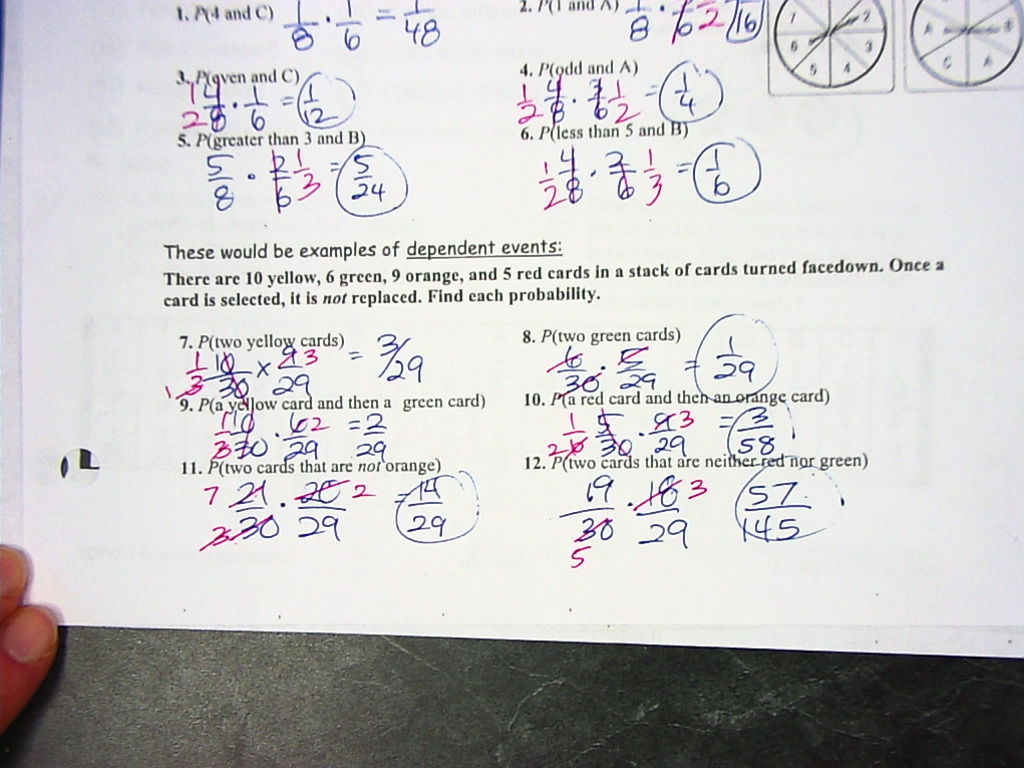 1. P(4 and C) 1/8 · 1/6 = 1/48
2. P(1 and A) 1/8 · /6 1/2 /16
3. P(even and C)
1/2 4/8 · 1/6 = 1/12
4. P(odd and A)
1/2 4/8 · 3/6 1/2 = 1/4
5. P(greater than 3 and B)
5/8 · 2/6 1/3 = 5/24
6. P(less than 5 and B)
1/2 4/8 · 2/6 1/3 = 1/6
7 2
6 3
5 4
A B
C A
These would be examples of dependent events:
There are 10 yellow, 6 green, 9 orange, and 5 red cards in a stack of cards turned facedown. Once a
card is selected, it is not replaced. Find each probability.
7. P(two yellow cards)
1 1/3 10/30 x 9/29 3 = 3/29
8. P(two green cards)
6/30 · 5/29 = 1/29
9. P(a yellow card and then a green card)
1/3 10/30 · 6/29 2 = 2/29
10. P(a red card and then an orange card)
2 1/6 5/30 · 9/29 3 = 3/58
11. P(two cards that are not orange)
7 21/30 3 · 20/29 2 = 14/29
12. P(two cards that are neither red nor green)
19/30 5 · 18/29 3 57/145